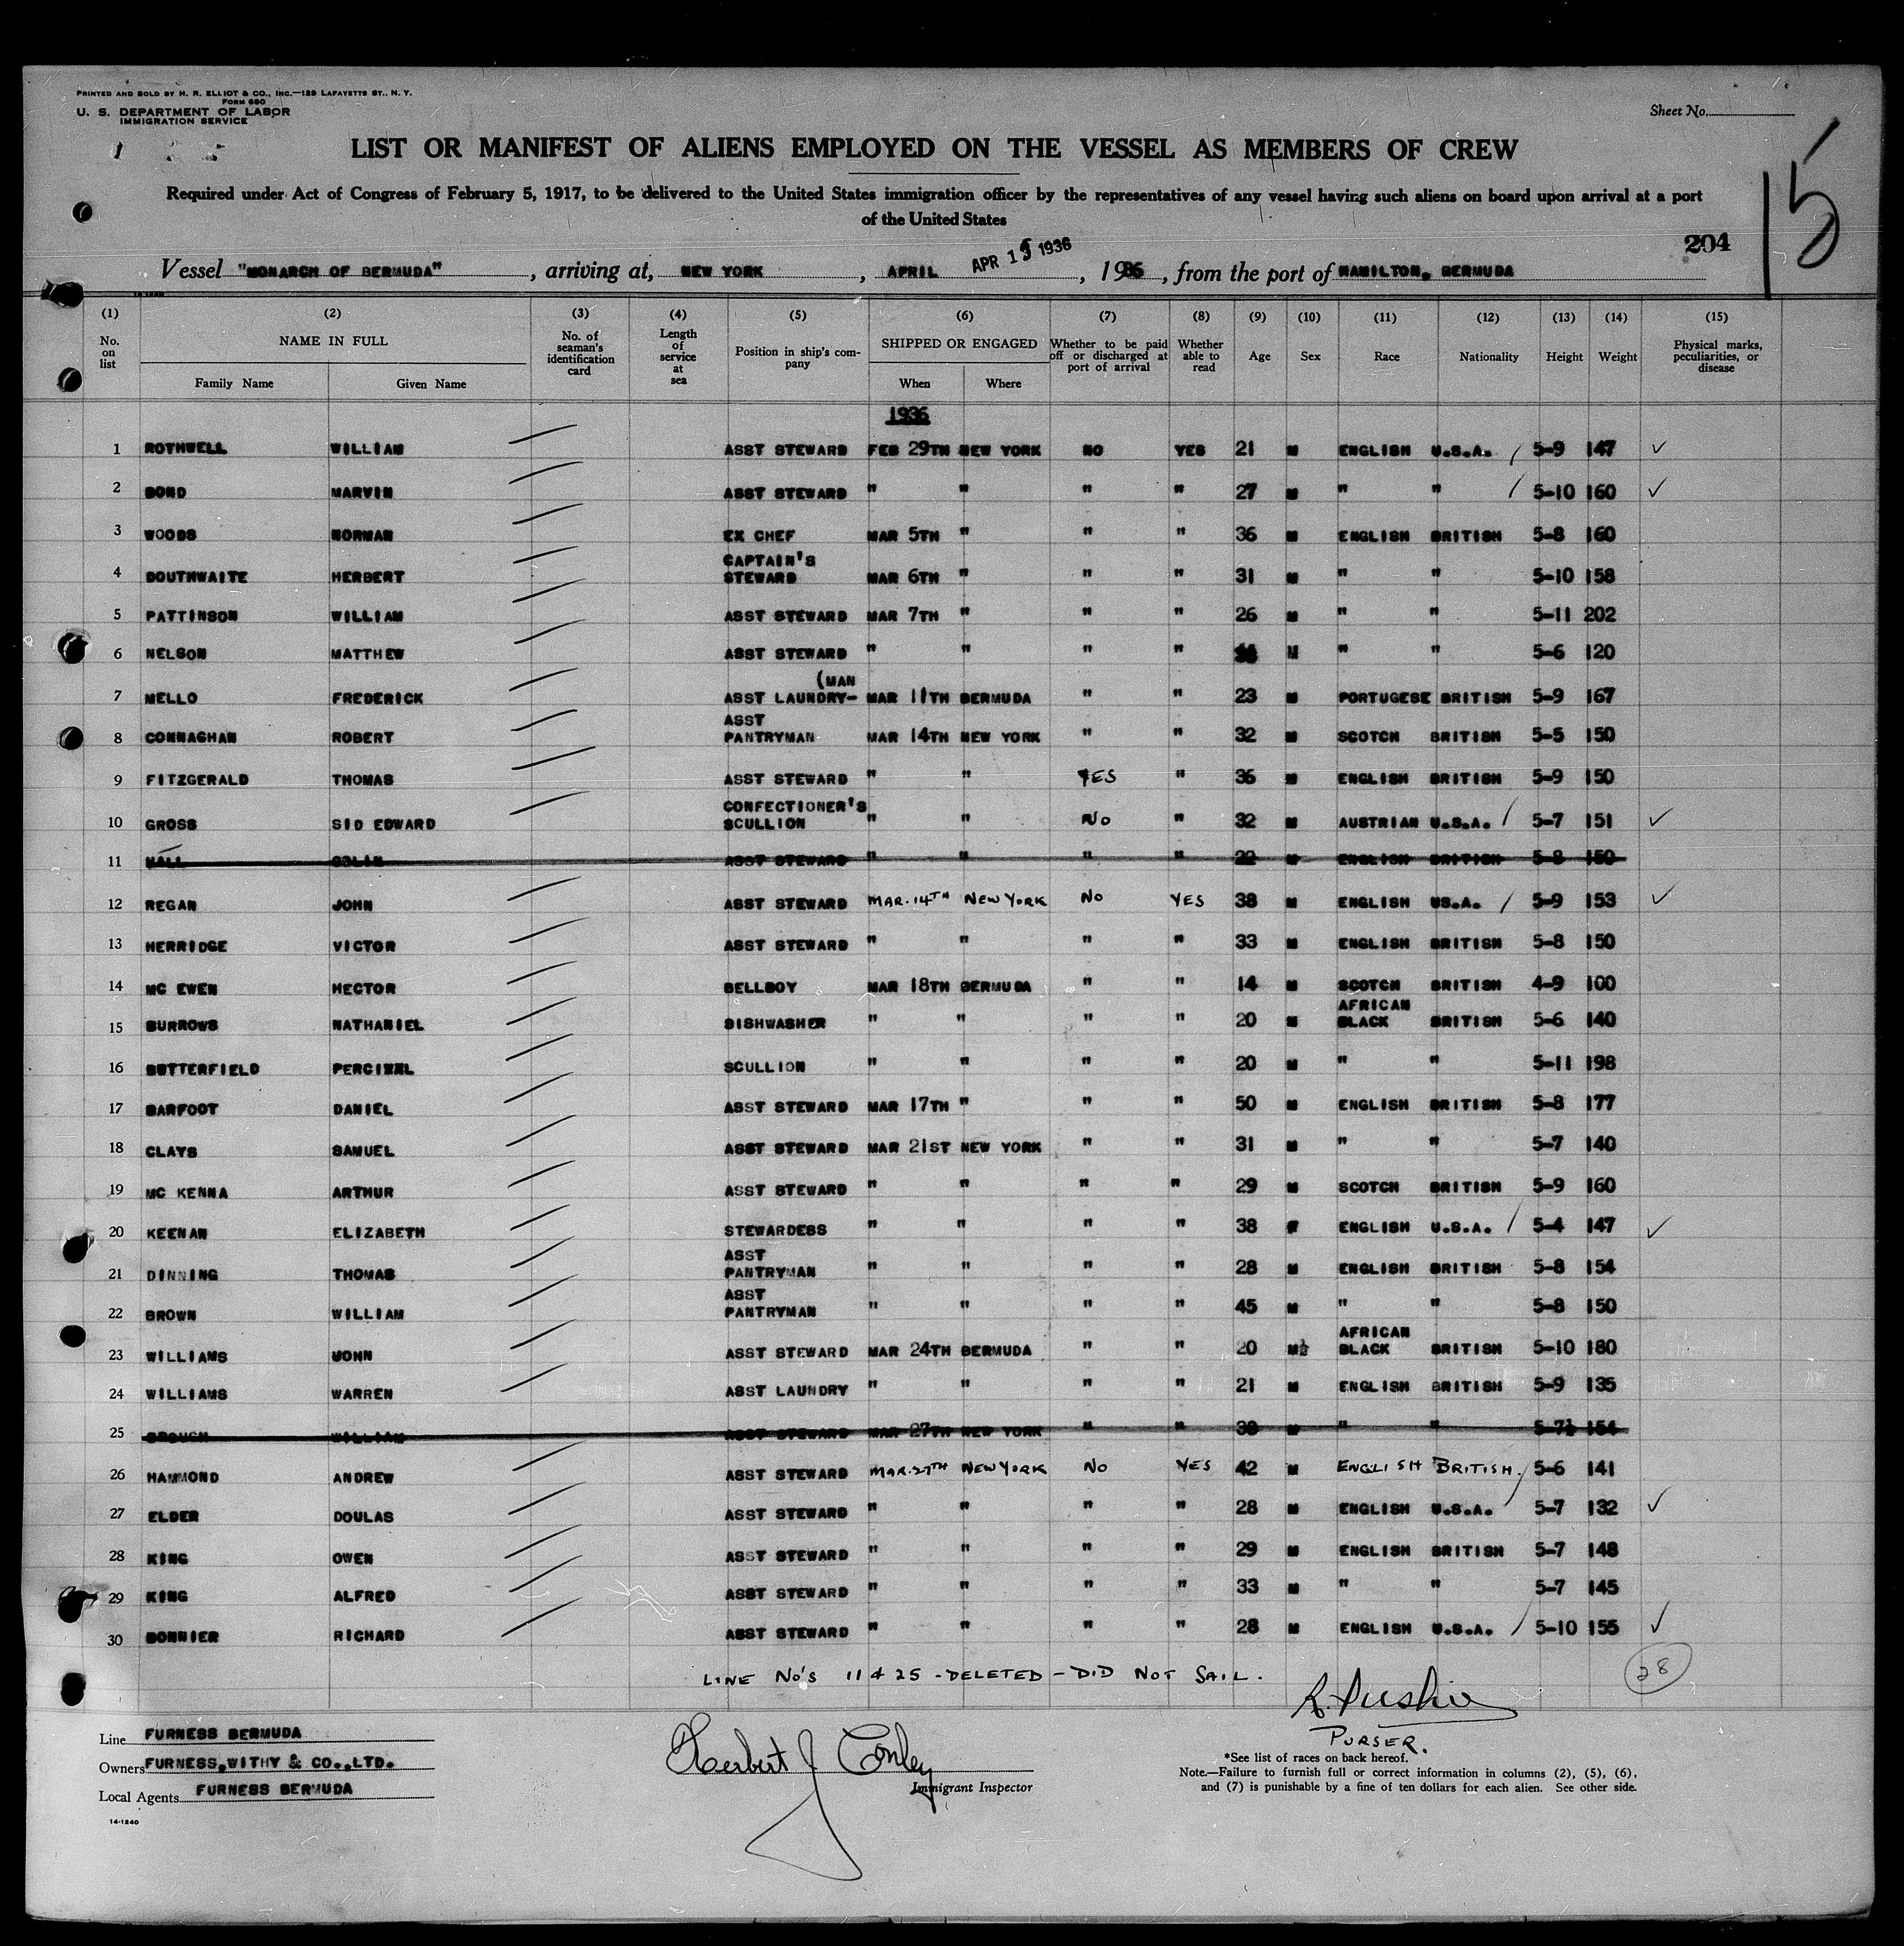 PRINTED AND SOLD BY H. R. ELLIOT & CO., INC.—129 LAFAYETTE ST., N. Y.
FORM 680
U. S. DEPARTMENT OF LABOR
IMMIGRATION SERVICE
Sheet No.
1
LIST OR MANIFEST OF ALIENS EMPLOYED ON THE VESSEL AS MEMBERS OF CREW
15
Required under Act of Congress of February 5, 1917, to be delivered to the United States immigration officer by the representatives of any vessel having such aliens on board upon arrival at a port
of the United States
204
Vessel "MONARCH OF BERMUDA", arriving at, NEW YORK, APRIL APR 15 1936, 1936, from the port of HAMILTON, BERMUDA
(1) (2) (3) (4) (5) (6) (7) (8) (9) (10) (11) (12) (13) (14) (15)
No. on list NAME IN FULL Family Name Given Name No. of seaman's identification card Length of service at sea Position in ship's company SHIPPED OR ENGAGED When Where Whether to be paid off or discharged at port of arrival Whether able to read Age Sex Race Nationality Height Weight Physical marks, peculiarities, or disease
1936
1 ROTHWELL WILLIAM ASST STEWARD FEB 29TH NEW YORK NO YES 21 M ENGLISH U.S.A. / 5-9 147 ✓
2 BOND MARVIN ASST STEWARD " " " " 27 M " " / 5-10 160 ✓
3 WOODS NORMAN EX CHEF MAR 5TH " " " 36 M ENGLISH BRITISH 5-8 160
4 DOUTHWAITE HERBERT CAPTAIN'S STEWARD MAR 6TH " " " 31 M " " 5-10 158
5 PATTINSON WILLIAM ASST STEWARD MAR 7TH " " " 26 M " " 5-11 202
6 NELSON MATTHEW ASST STEWARD " " " " M " " 5-6 120
7 MELLO FREDERICK ASST LAUNDRY- (MAN MAR 11TH BERMUDA " " 23 M PORTUGESE BRITISH 5-9 167
8 CONNAGHAN ROBERT ASST PANTRYMAN MAR 14TH NEW YORK " " 32 M SCOTCH BRITISH 5-5 150
9 FITZGERALD THOMAS ASST STEWARD " " YES " 36 M ENGLISH BRITISH 5-9 150
10 GROSS SID EDWARD CONFECTIONER'S SCULLION " " No " 32 M AUSTRIAN U.S.A. / 5-7 151 ✓
11 HALL COLIN ASST STEWARD " " " " 22 M ENGLISH BRITISH 5-8 150
12 REGAN JOHN ASST STEWARD MAR. 14TH NEW YORK No YES 38 M ENGLISH US.A. / 5-9 153 ✓
13 HERRIDGE VICTOR ASST STEWARD " " " " 33 M ENGLISH BRITISH 5-8 150
14 MC EWEN HECTOR BELLBOY MAR 18TH BERMUDA " " 14 M SCOTCH BRITISH 4-9 100
15 BURROWS NATHANIEL DISHWASHER " " " " 20 M AFRICAN BLACK BRITISH 5-6 140
16 BUTTERFIELD SCULLION " " " " 20 M " " 5-11 198
17 BARFOOT DANIEL ASST STEWARD MAR 17TH " " " 50 M ENGLISH BRITISH 5-8 177
18 CLAYS SAMUEL ASST STEWARD MAR 21ST NEW YORK " " 31 M " " 5-7 140
19 MC KENNA ARTHUR ASST STEWARD " " " " 29 M SCOTCH BRITISH 5-9 160
20 KEENAN ELIZABETH STEWARDESS " " " " 38 F ENGLISH U.S.A. / 5-4 147 ✓
21 DINNING THOMAS ASST PANTRYMAN " " " " 28 M ENGLISH BRITISH 5-8 154
22 BROWN WILLIAM ASST PANTRYMAN " " " " 45 M " " 5-8 150
23 WILLIAMS JOHN ASST STEWARD MAR 24TH BERMUDA " " 20 M AFRICAN BLACK BRITISH 5-10 180
24 WILLIAMS WARREN ASST LAUNDRY " " " " 21 M ENGLISH BRITISH 5-9 135
25 BROUGH WILLIAM ASST STEWARD MAR 27TH NEW YORK " " 30 M " " 5-7½ 154
26 HAMMOND ANDREW ASST STEWARD MAR. 27TH NEW YORK No YES 42 M ENGLISH BRITISH. 5-6 141
27 ELDER DOULAS ASST STEWARD " " " " 28 M ENGLISH U.S.A. / 5-7 132 ✓
28 KING OWEN ASST STEWARD " " " " 29 M ENGLISH BRITISH 5-7 148
29 KING ALFRED ASST STEWARD " " " " 33 M " " 5-7 145
30 BONNIER RICHARD ASST STEWARD " " " " 28 M ENGLISH U.S.A. / 5-10 155 ✓
LINE No's 11 & 25 - DELETED - DID NOT SAIL.
28
PURSER.
Line FURNESS BERMUDA
Owners FURNESS, WITHY & CO., LTD.
Local Agents FURNESS BERMUDA
14-1240
Herbert J Conley
Immigrant Inspector
*See list of races on back hereof.
Note.—Failure to furnish full or correct information in columns (2), (5), (6),
and (7) is punishable by a fine of ten dollars for each alien. See other side.